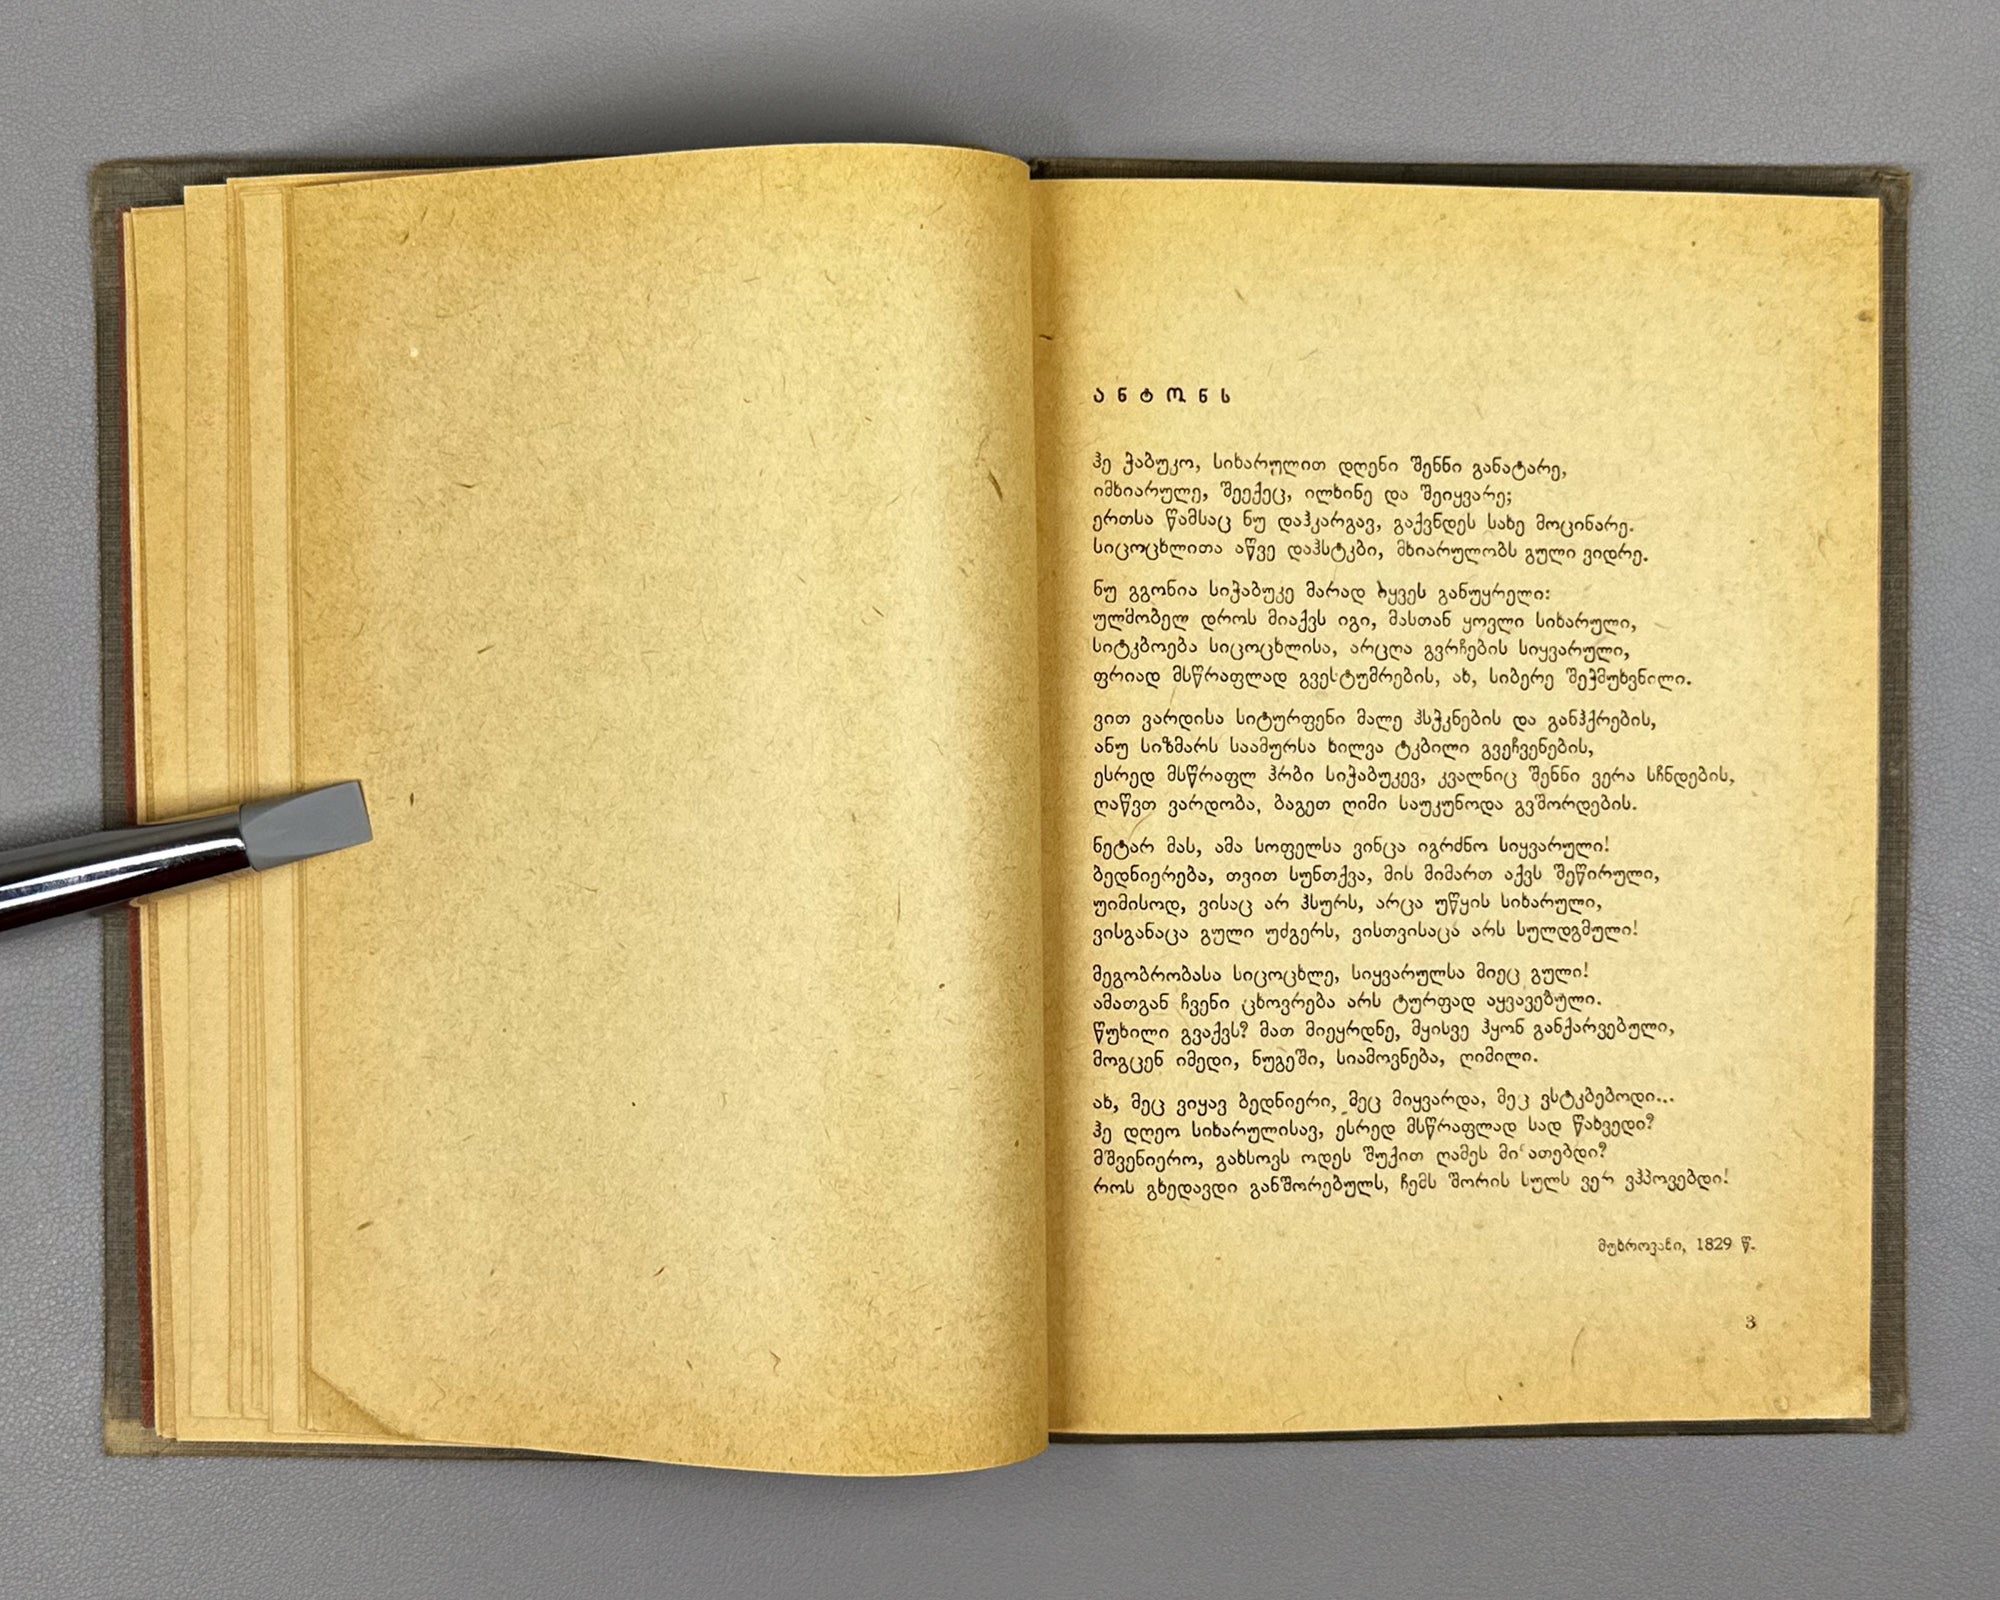 ანტონს
ჰე ჭაბუკო, სიხარულით დღენი შენნი განატარე,
იმხიარულე, შეექეც, ილხინე და შეიყვარე;
ერთსა წამსაც ნუ დაჰკარგავ, გაქვნდეს სახე მოცინარე.
სიცოცხლითა აწვე დაჰსტკბი, მხიარულობს გული ვიდრე.
ნუ გგონია სიჭაბუკე მარად გყვეს განუყრელი:
ულმობელ დროს მიაქვს იგი, მასთან ყოვლი სიხარული,
სიტკბოება სიცოცხლისა, არცღა გვრჩების სიყვარული,
ფრიად მსწრაფლად გვესტუმრების, ახ, სიბერე შეჭმუხვნილი.
ვით ვარდისა სიტურფენი მალე ჰსჭკნების და განჰქრების,
ანუ სიზმარს საამურსა ხილვა ტკბილი გვეჩვენების,
ესრედ მსწრაფლ ჰრბი სიჭაბუკევ, კვალნიც შენნი ვერა სჩნდების,
ღაწვთ ვარდობა, ბაგეთ ღიმი საუკუნოდა გვშორდების.
ნეტარ მას, ამა სოფელსა ვინცა იგრძნო სიყვარული!
ბედნიერება, თვით სუნთქვა, მის მიმართ აქვს შეწირული,
უიმისოდ, ვისაც არ ჰსურს, არცა უწყის სიხარული,
ვისგანაცა გული უძგერს, ვისთვისაცა არს სულდგმული!
მეგობრობასა სიცოცხლე, სიყვარულსა მიეც გული!
ამათგან ჩვენი ცხოვრება არს ტურფად აყვავებული.
წუხილი გვაქვს? მათ მიეყრდნე, მყისვე ჰყონ განქარვებული,
მოგცენ იმედი, ნუგეში, სიამოვნება, ღიმილი.
ახ, მეც ვიყავ ბედნიერი, მეც მიყვარდა, მეც ვსტკბებოდი...
ჰე დღეო სიხარულისავ, ესრედ მსწრაფლად სად წახვედი?
მშვენიერო, გახსოვს ოდეს შუქით ღამეს მიათებდი?
როს გხედავდი განშორებულს, ჩემს შორის სულს ვერ ვჰპოვებდი!
მუხროვანი, 1829 წ.
3